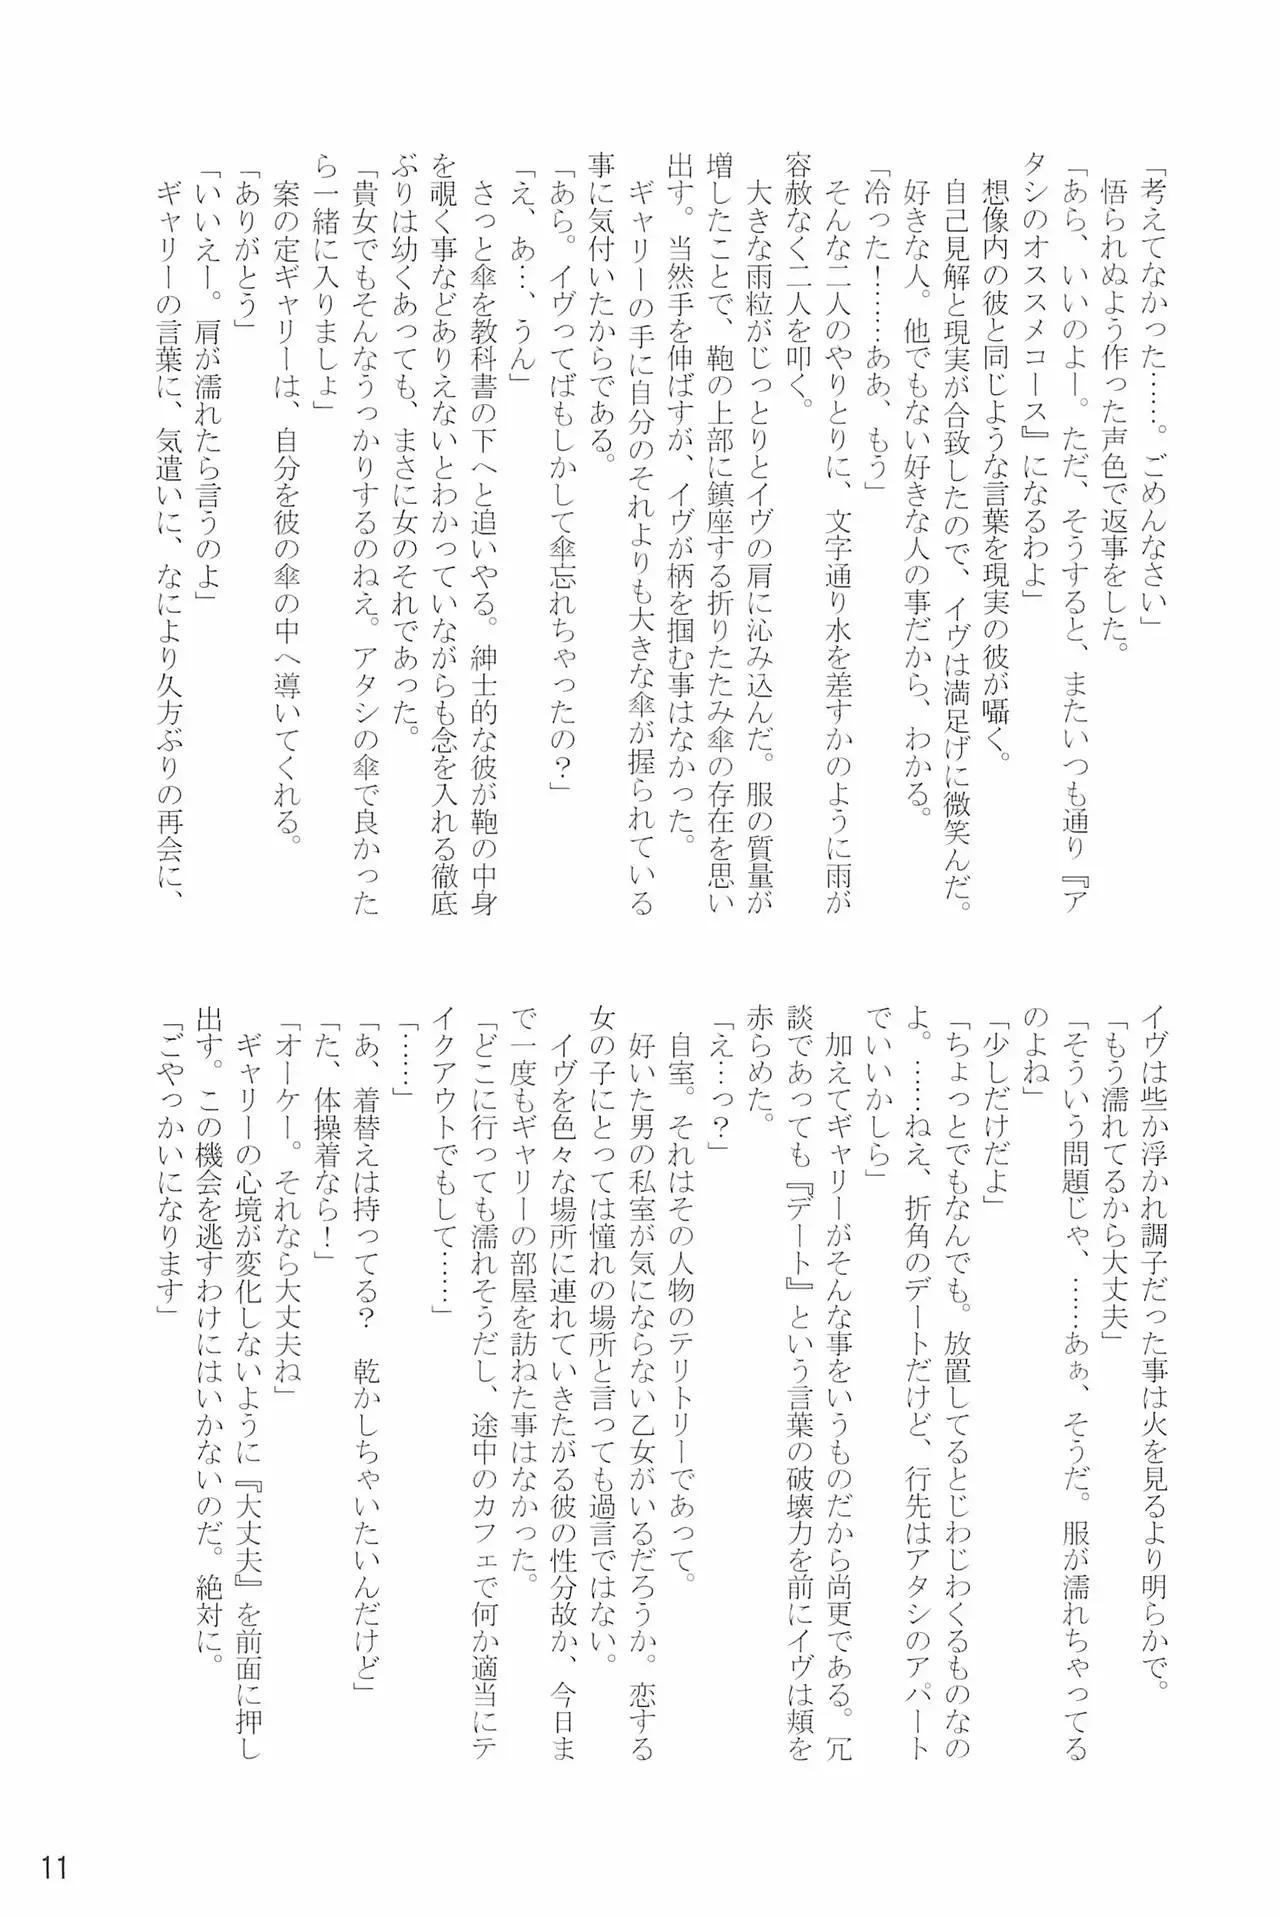 「考えてなかった……。ごめんなさい」
悟られぬよう作った声色で返事をした。
「あら、いいのよー。ただ、そうすると、またいつも通り『ア
タシのオススメコース』になるわよ」
想像内の彼と同じような言葉を現実の彼が囁く。
自己見解と現実が合致したので、イヴは満足げに微笑んだ。
好きな人。他でもない好きな人の事だから、わかる。
「冷った！……ああ、もう」
そんな二人のやりとりに、文字通り水を差すかのように雨が
容赦なく二人を叩く。
大きな雨粒がじっとりとイヴの肩に沁み込んだ。服の質量が
増したことで、鞄の上部に鎮座する折りたたみ傘の存在を思い
出す。当然手を伸ばすが、イヴが柄を掴む事はなかった。
ギャリーの手に自分のそれよりも大きな傘が握られている
事に気付いたからである。
「あら。イヴってばもしかして傘忘れちゃったの？」
「え、あ…、うん」
さっと傘を教科書の下へと追いやる。紳士的な彼が鞄の中身
を覗く事などありえないとわかっていながらも念を入れる徹底
ぶりは幼くあっても、まさに女のそれであった。
「貴女でもそんなうっかりするのねえ。アタシの傘で良かった
ら一緒に入りましょ」
案の定ギャリーは、自分を彼の傘の中へ導いてくれる。
「ありがとう」
「いいえー。肩が濡れたら言うのよ」
ギャリーの言葉に、気遣いに、なにより久方ぶりの再会に、
イヴは些か浮かれ調子だった事は火を見るより明らかで。
「もう濡れてるから大丈夫」
「そういう問題じゃ、……あぁ、そうだ。服が濡れちゃってる
のよね」
「少しだけだよ」
「ちょっとでもなんでも。放置してるとじわじわくるものなの
よ。……ねえ、折角のデートだけど、行先はアタシのアパート
でいいかしら」
加えてギャリーがそんな事をいうものだから尚更である。冗
談であっても『デート』という言葉の破壊力を前にイヴは頬を
赤らめた。
「え…っ？」
自室。それはその人物のテリトリーであって。
好いた男の私室が気にならない乙女がいるだろうか。恋する
女の子にとっては憧れの場所と言っても過言ではない。
イヴを色々な場所に連れていきたがる彼の性分故か、今日ま
で一度もギャリーの部屋を訪ねた事はなかった。
「どこに行っても濡れそうだし、途中のカフェで何か適当にテ
イクアウトでもして……」
「……」
「あ、着替えは持ってる？　乾かしちゃいたいんだけど」
「た、体操着なら！」
「オーケー。それなら大丈夫ね」
ギャリーの心境が変化しないように『大丈夫』を前面に押し
出す。この機会を逃すわけにはいかないのだ。絶対に。
「ごやっかいになります」
11